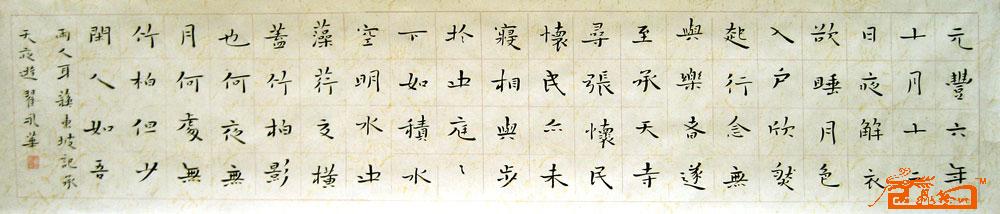 元豐六年
十月十二
日夜解衣
欲睡月色
入戶欣然
起行念無
與樂者遂
至承天寺
尋張懷民
懷民亦未
寢相與步
於中庭〻
下如積水
空明水中
藻荇交橫
蓋竹柏影
也何夜無
月何處無
竹柏但少
閑人如吾
兩人耳 蘇東坡記承
天夜遊 翟永華